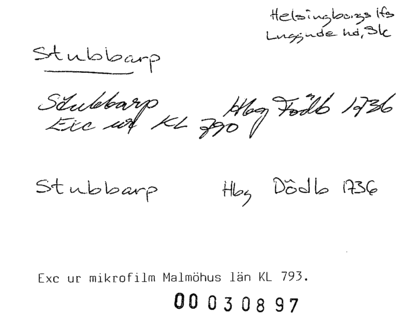 Helsingborgs lfs
Luggude hd, Sk
Stubbarp
Stubbarp Hbg Födb 1736
Exc ur KL 790
Stubbarp Hbg Dödb 1736
Exc ur mikrofilm Malmöhus län KL 793.
00 030897